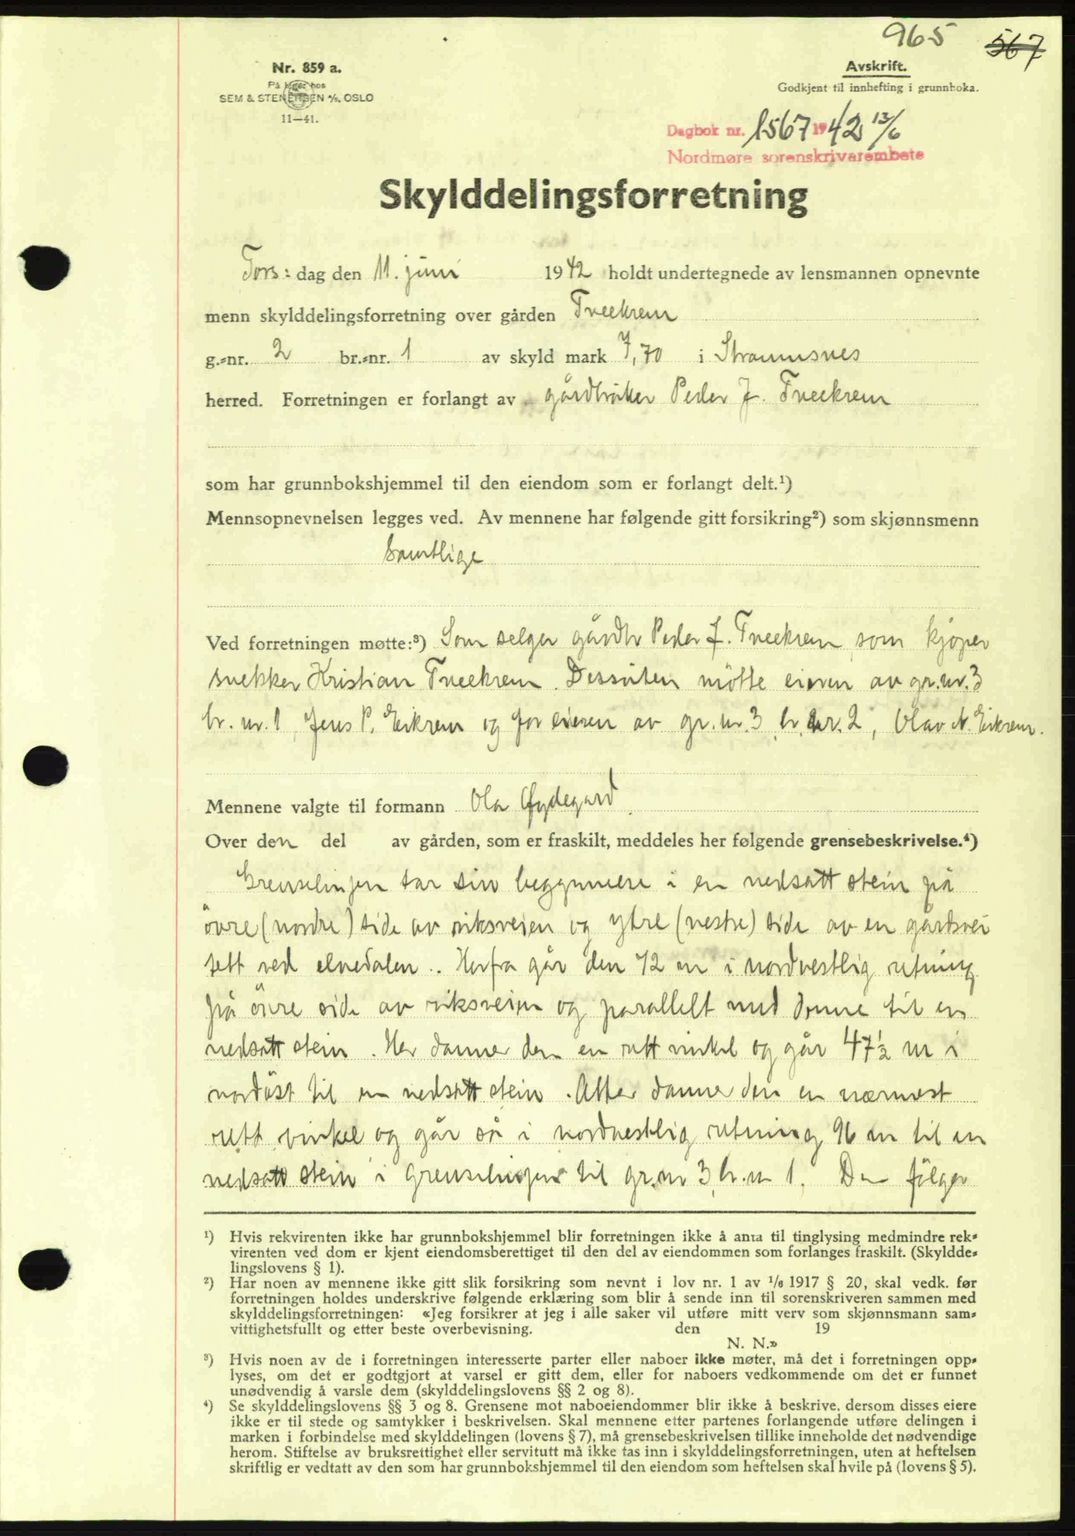 965 567
Nr. 859 a.
På lager hos
SEM & STENERSEN A/S, OSLO
11—41.
Avskrift.
Godkjent til innhefting i grunnboka.
Dagbok nr. 1567 1942 13/6
Nordmøre sorenskriverembete
Skylddelingsforretning
Tors: dag den 11. juni 1942 holdt undertegnede av lensmannen opnevnte
menn skylddelingsforretning over gården Tveekrem
g.-nr. 2 br.-nr. 1 av skyld mark 7,70 i Straumsnes
herred. Forretningen er forlangt av gårdbruker Peder J. Tveekrem
som har grunnbokshjemmel til den eiendom som er forlangt delt.¹)
Mennsopnevnelsen legges ved. Av mennene har følgende gitt forsikring²) som skjønnsmenn
Samtlige
Ved forretningen møtte:³) Som selger gårdbr Peder J. Tveekrem, som kjøper
snekker Kristian Tveekrem. Dessuten møtte eieren av gr.nr. 3
br. nr. 1, Jens P. Eikrem og for eieren av gr. nr. 3 br. nr. 2, Olav N. Eikrem.
Mennene valgte til formann Ola Øydegard
Over den del av gården, som er fraskilt, meddeles her følgende grensebeskrivelse.⁴)
Grenselinjen tar sin begynnelse i en nedsatt stein på
övre (nordre) side av riksveien og ytre (vestre) side av en gårdsvei
tett ved elvedalen. Herfra går den 72 m i nordvestlig retning
på övre side av riksveien og parallelt med denne til en
nedsatt stein. Her danner den en rett vinkel og går 47½ m i
nordöst til en nedsatt stein. Atter danner den en nærmest
rett vinkel og går så i nordvestlig retning 96 m til en
nedsatt stein i grenselinjen til gr.nr 3, br. nr 1. Den fölger
¹) Hvis rekvirenten ikke har grunnbokshjemmel blir forretningen ikke å anta til tinglysing medmindre rek-
virenten ved dom er kjent eiendomsberettiget til den del av eiendommen som forlanges fraskilt. (Skyldde-
lingslovens § 1).
²) Har noen av mennene ikke gitt slik forsikring som nevnt i lov nr. 1 av 1/6 1917 § 20, skal vedk. før
forretningen holdes underskrive følgende erklæring som blir å sende inn til sorenskriveren sammen med
skylddelingsforretningen: «Jeg forsikrer at jeg i alle saker vil utføre mitt verv som skjønnsmann sam-
vittighetsfullt og etter beste overbevisning. den 19
N. N.»
³) Hvis noen av de i forretningen interesserte parter eller naboer ikke møter, må det i forretningen opp-
lyses, om det er godtgjort at varsel er gitt dem, eller for naboers vedkommende om det er funnet
unødvendig å varsle dem (skylddelingslovens §§ 2 og 8).
⁴) Se skylddelingslovens §§ 3 og 8. Grensene mot naboeiendommer blir ikke å beskrive, dersom disses eiere
ikke er til stede og samtykker i beskrivelsen. Skal mennene etter partenes forlangende utføre delingen i
marken i forbindelse med skylddelingen (lovens § 7), må grensebeskrivelsen tillike inneholde det nødvendige
herom. Stiftelse av bruksrettighet eller servitutt må ikke tas inn i skylddelingsforretningen, uten at heftelsen
skriftlig er vedtatt av den som har grunnbokshjemmel til den eiendom som heftelsen skal hvile på (lovens § 5).